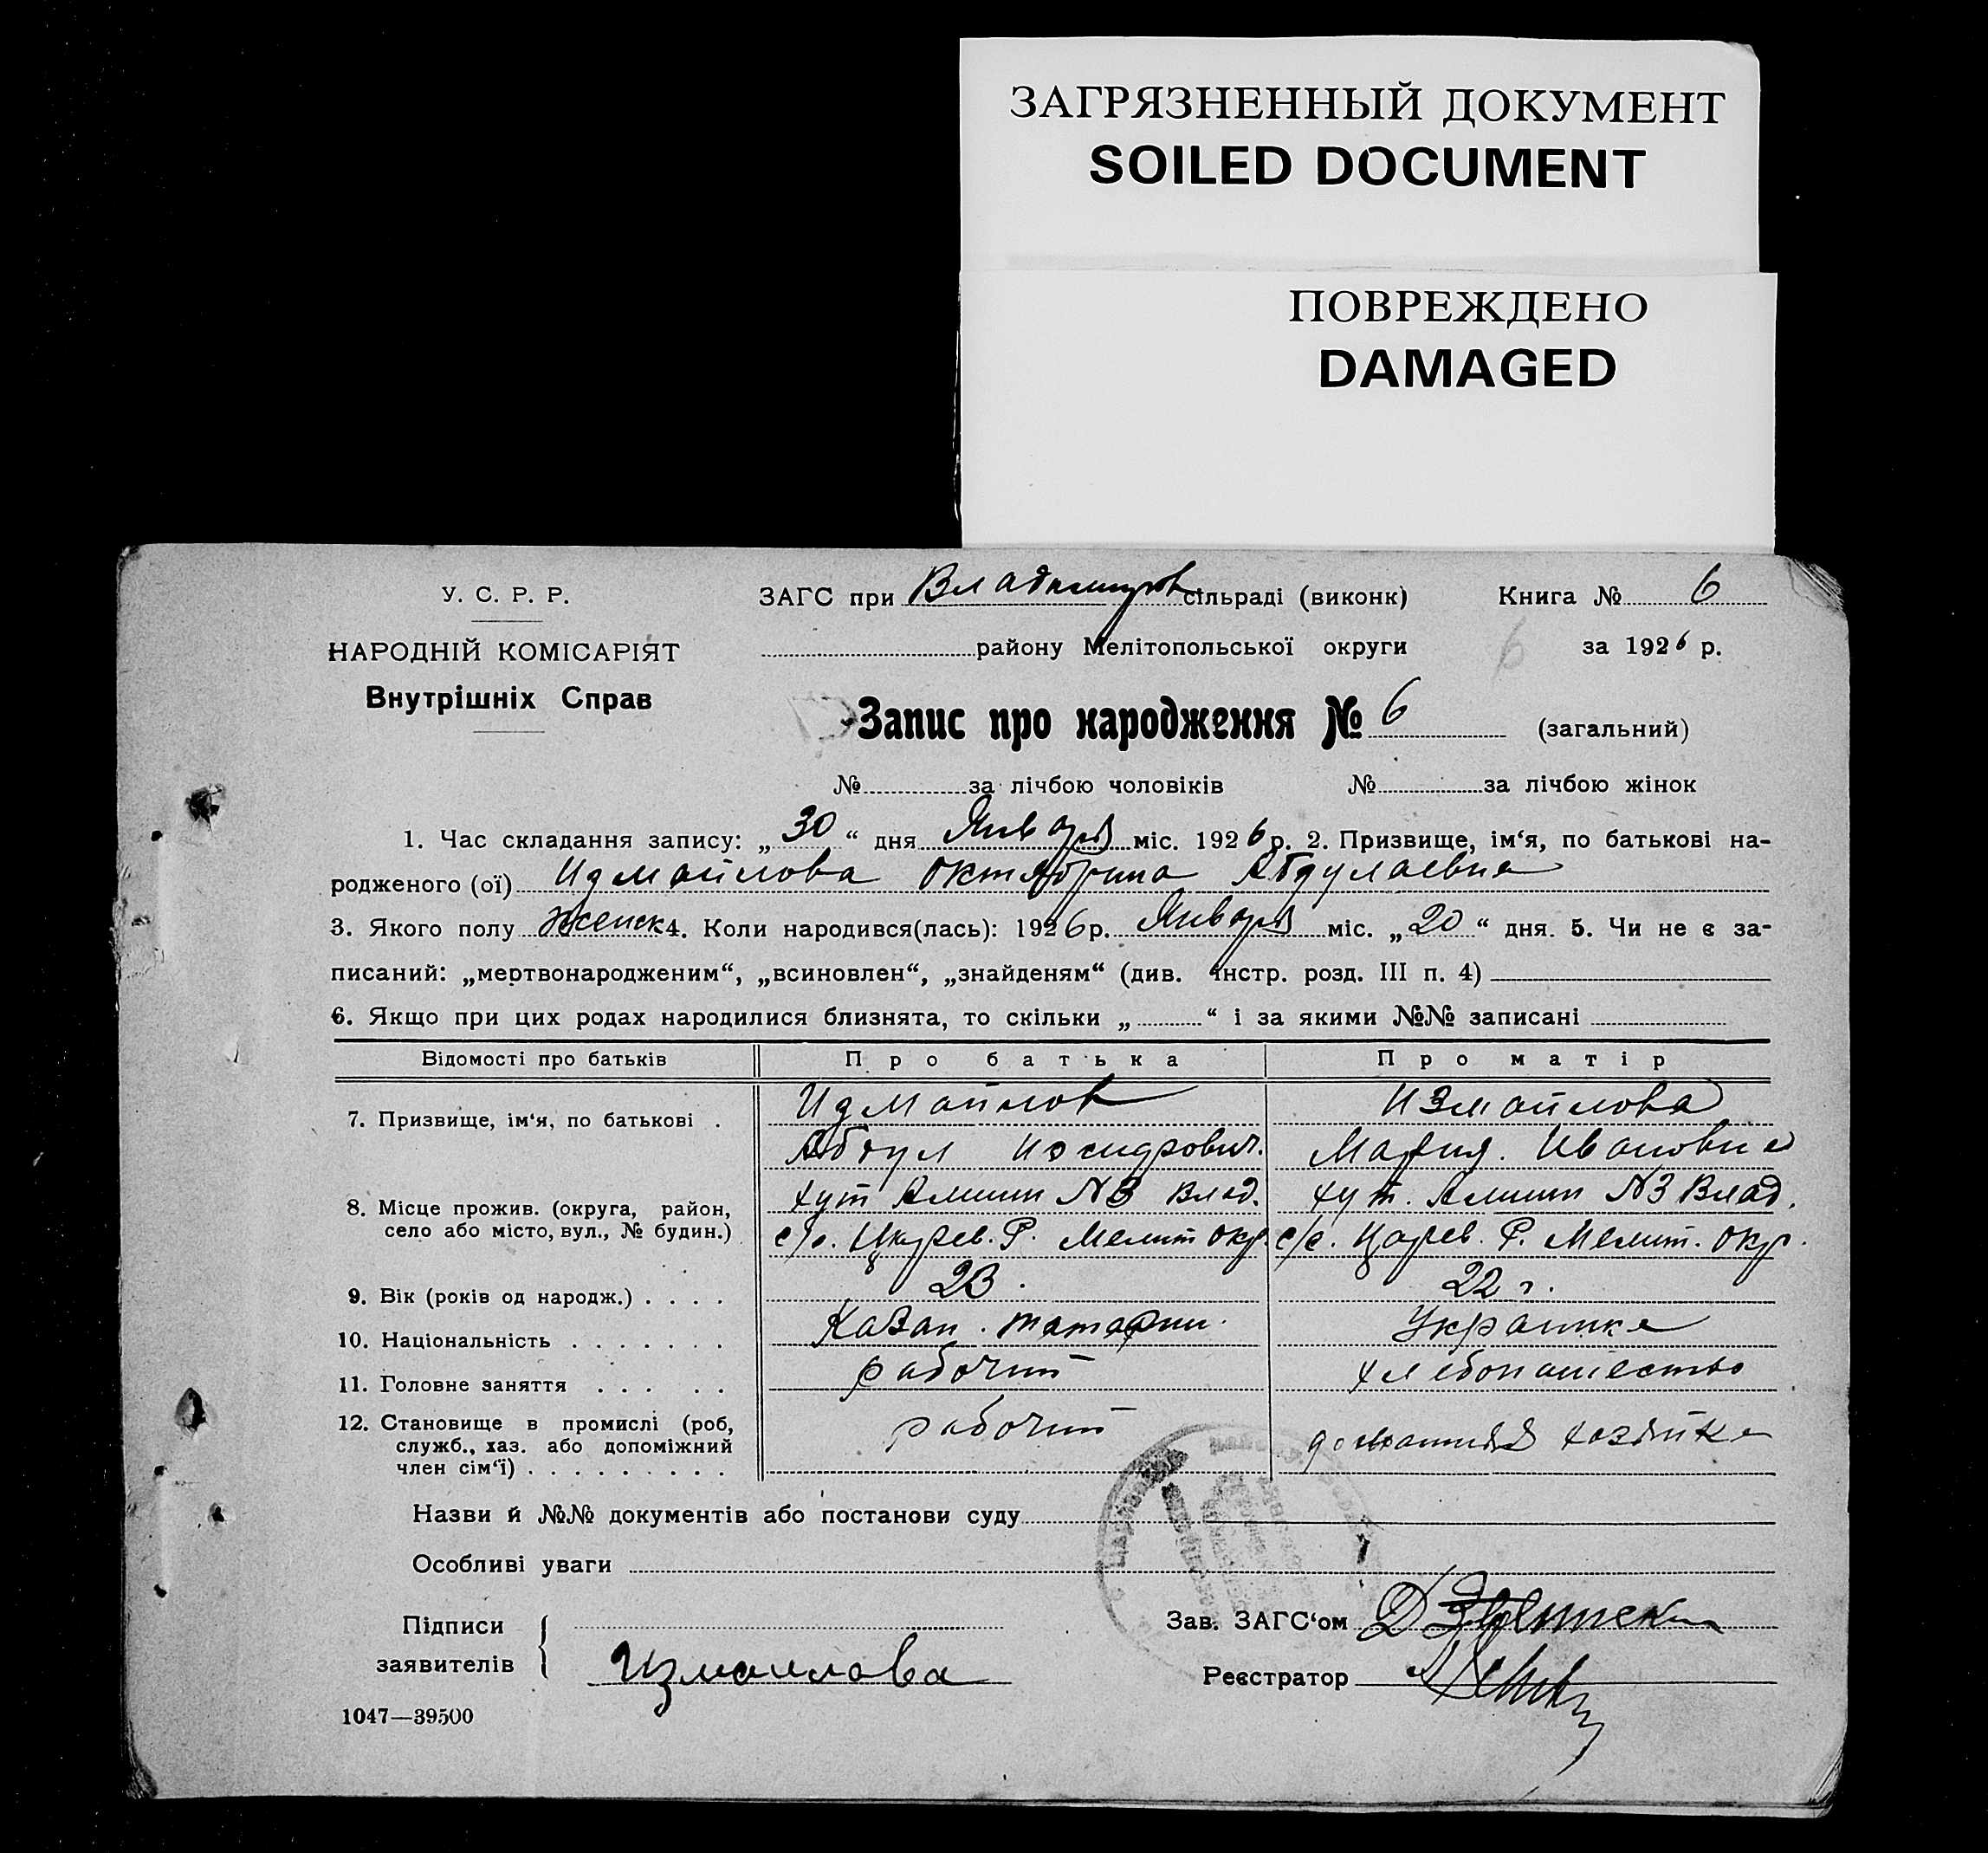 ЗАГРЯЗНЕННЫЙ ДОКУМЕНТ
SOILED DOCUMENT
ПОВРЕЖДЕНО
DAMAGED
У. С. Р. Р.
НАРОДНІЙ КОМІСАРІЯТ
Внутрішніх Справ
ЗАГС при Владимиров сільраді (виконк)
Книга № 6
району Мелітопольської округи
6
за 1926 р.
Запис про народження № 6 (загальний)
№ за лічбою чоловіків № за лічбою жінок
1. Час складання запису: „30“ дня Января міс. 1926 р. 2. Призвище, ім‘я, по батькові на-
родженого (ої) Идмайлова Октябрина Абдулаевна
3. Якого полу женск 4. Коли народився(лась): 1926 р. Января міс. „20“ дня. 5. Чи не є за-
писаний: „мертвонародженим“, „всиновлен“, „знайденям“ (див. інстр. розд. III п. 4)
6. Якщо при цих родах народилися близнята, то скільки „ “ і за якими №№ записані
Відомості про батьків Про батька Про матір
7. Призвище, ім‘я, по батькові .
Идмайлов
Абдул
Измайлова
Мария. Ивановна
8. Місце прожив. (округа, район,
село або місто, вул., № будин.)
хут N3 Влад.
с/с. Царев. Р. Мелит окр.
хут. N3 Влад.
с/с. Царев. Р. Мелит. окр.
9. Вік (років од народж.) . . . . 23. 22 г.
10. Національність . . . . . . . Казан. татарин. Украинка
11. Головне заняття . . . . . рабочий хлебопашество
12. Становище в промислі (роб,
служб., хаз. або допоміжний
член сім‘ї) . . . . . . . . .
рабочий
домашняя хозяйка
Назви й №№ документів або постанови суду
Особливі уваги
Підписи
заявителів
Измаилова
Зав. ЗАГС‘ом
Реєстратор
1047—39500